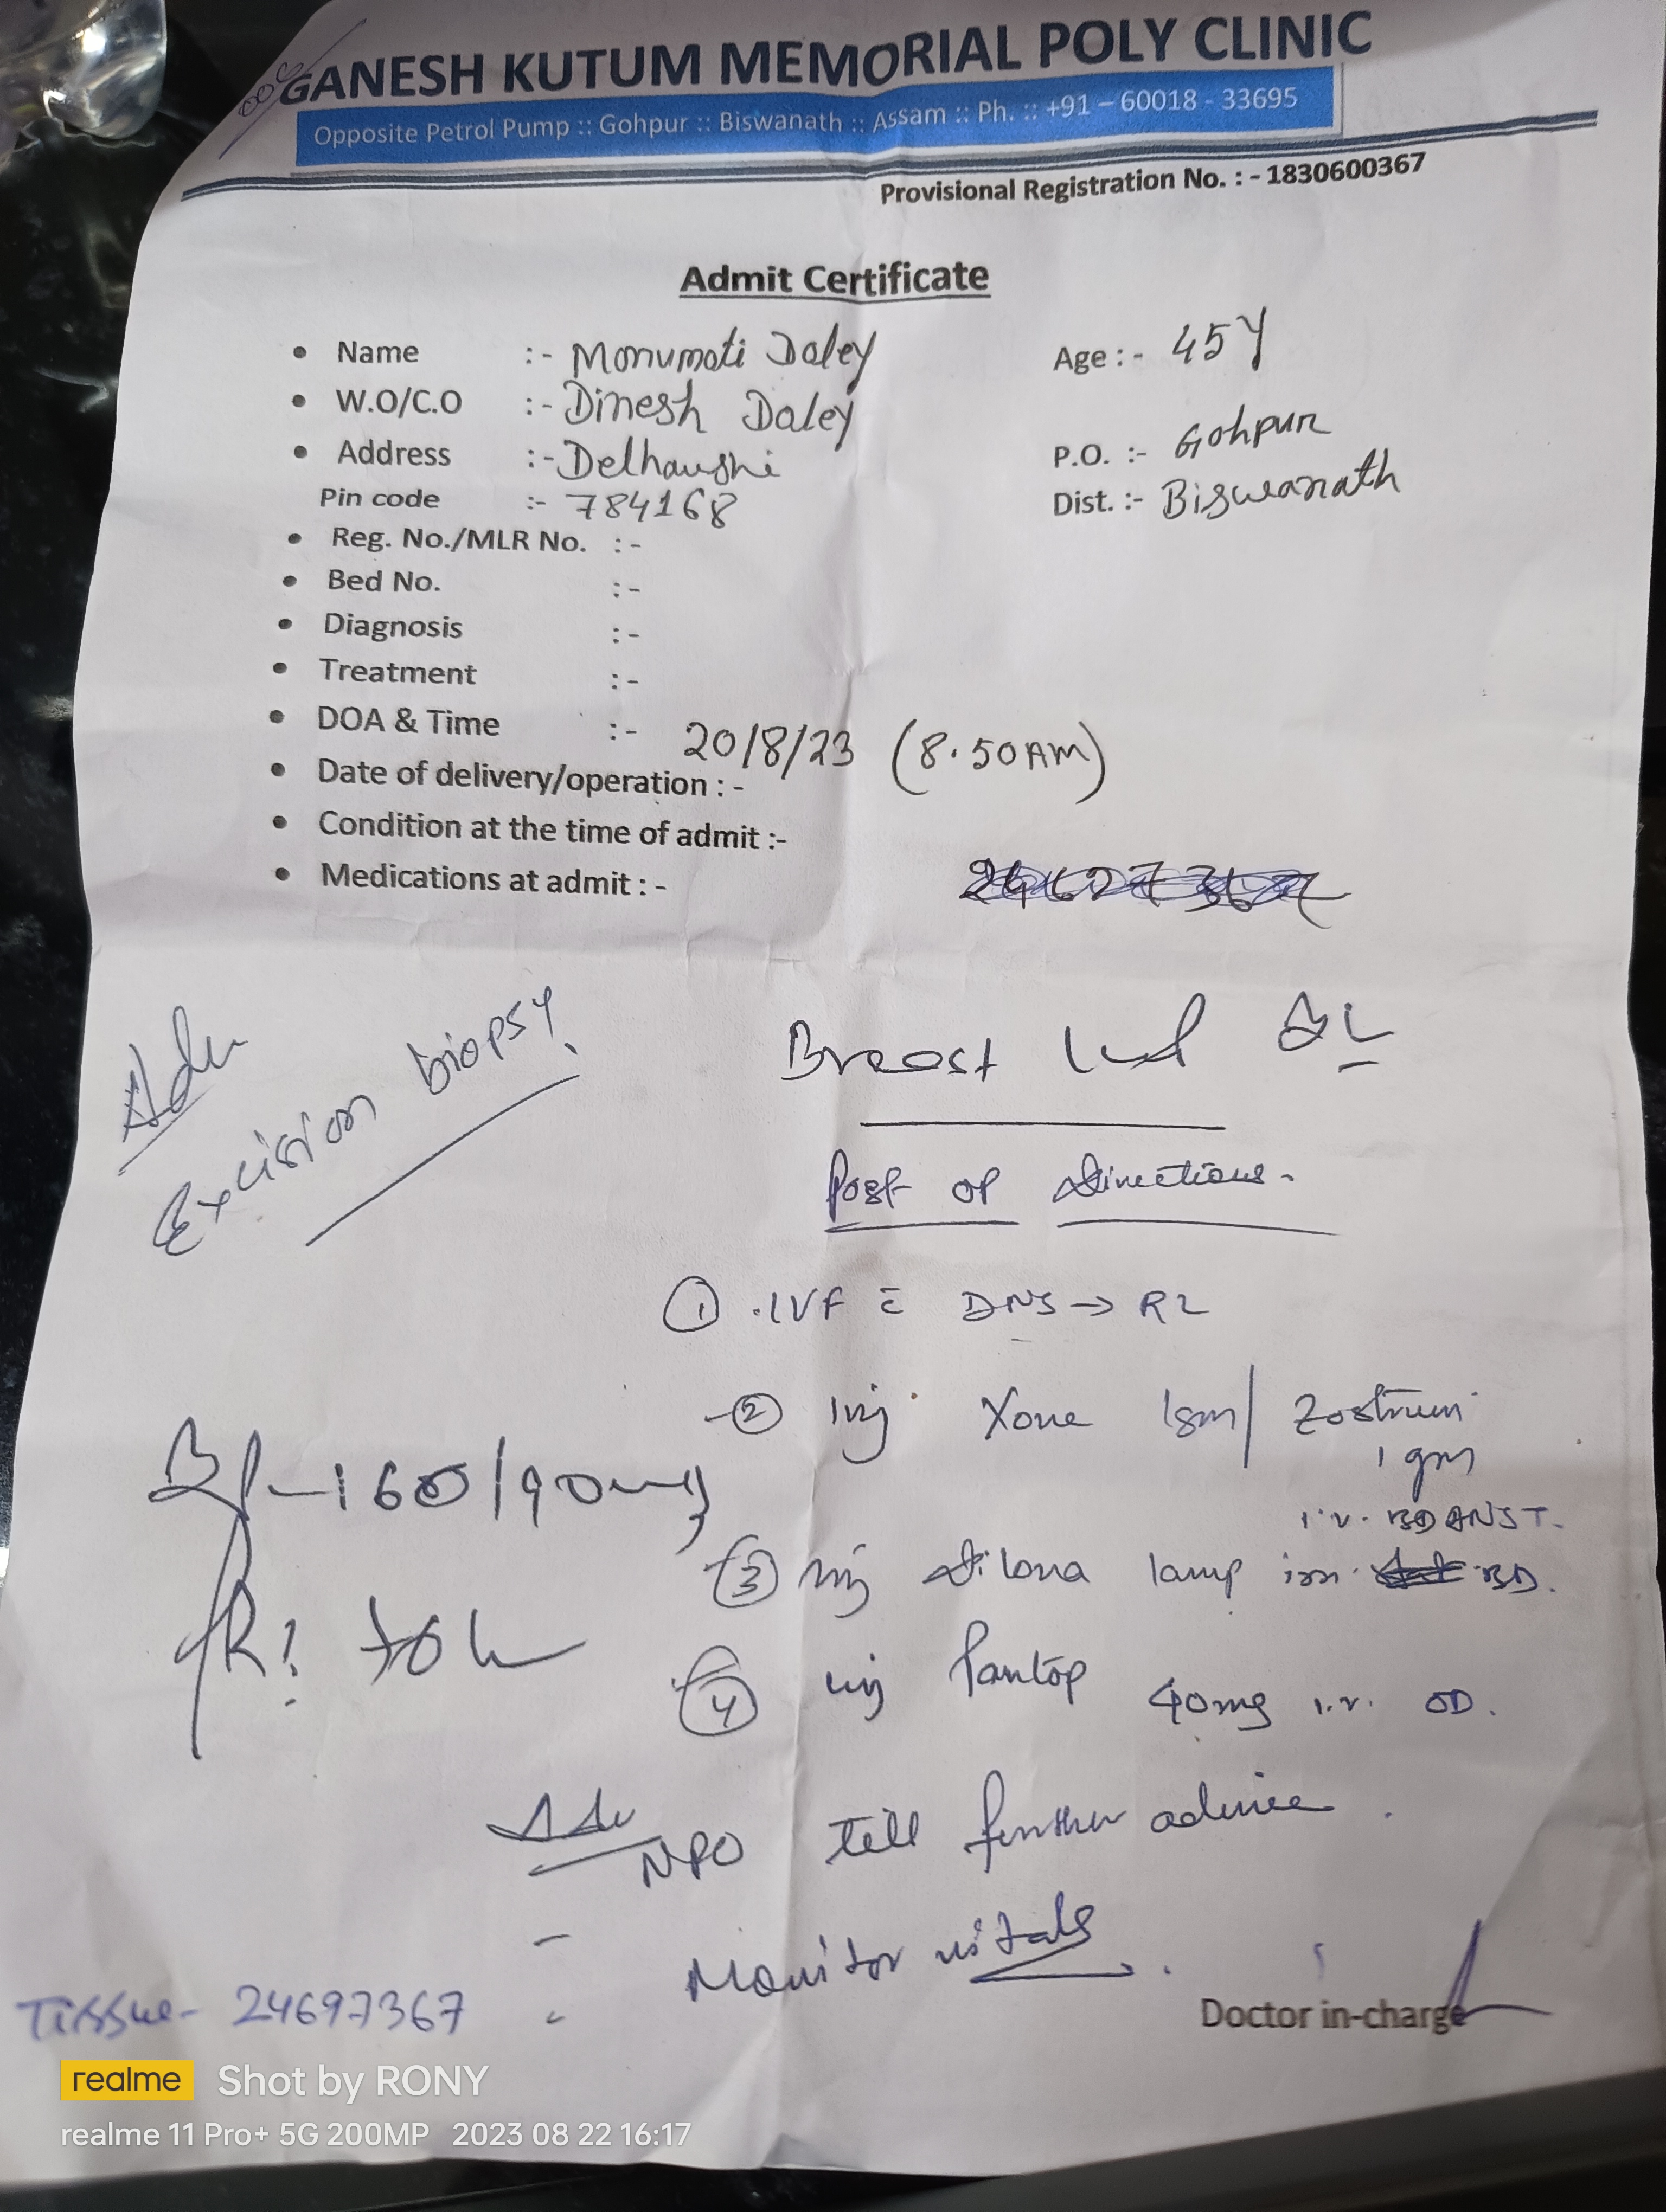 GANESH KUTUM MEMORIAL POLY CLINIC
Opposite Petrol Pump :: Gohpur :: Biswanath :: Assam :: Ph. :: +91 – 60018 - 33695
Provisional Registration No. : - 1830600367
Admit Certificate
• Name :- Monumati Daley Age : - 45Y
• W.O/C.O :- Dinesh Daley
• Address :- Delhaushi P.O. :- Gohpur
Pin code :- 784168 Dist. :- Biswanath
• Reg. No./MLR No. : -
• Bed No. : -
• Diagnosis : -
• Treatment : -
• DOA & Time : - 20/8/23 (8.50AM)
• Date of delivery/operation : -
• Condition at the time of admit :-
• Medications at admit : -
Adv
Excision biopsy
Breast
Post op directions.
① IVF c̄ DNS → RL
② inj Xone 1gm/
1 gm
i.v. BD ANST.
BP - 160/90
③ inj Dilona 1amp im BD.
④ inj Pantop 40mg i.v. OD.
Adv
NPO till further advice.
- Monitor vitals.
Tissue- 24697367
Doctor in-charge
realme Shot by RONY
realme 11 Pro+ 5G 200MP 2023 08 22 16:17